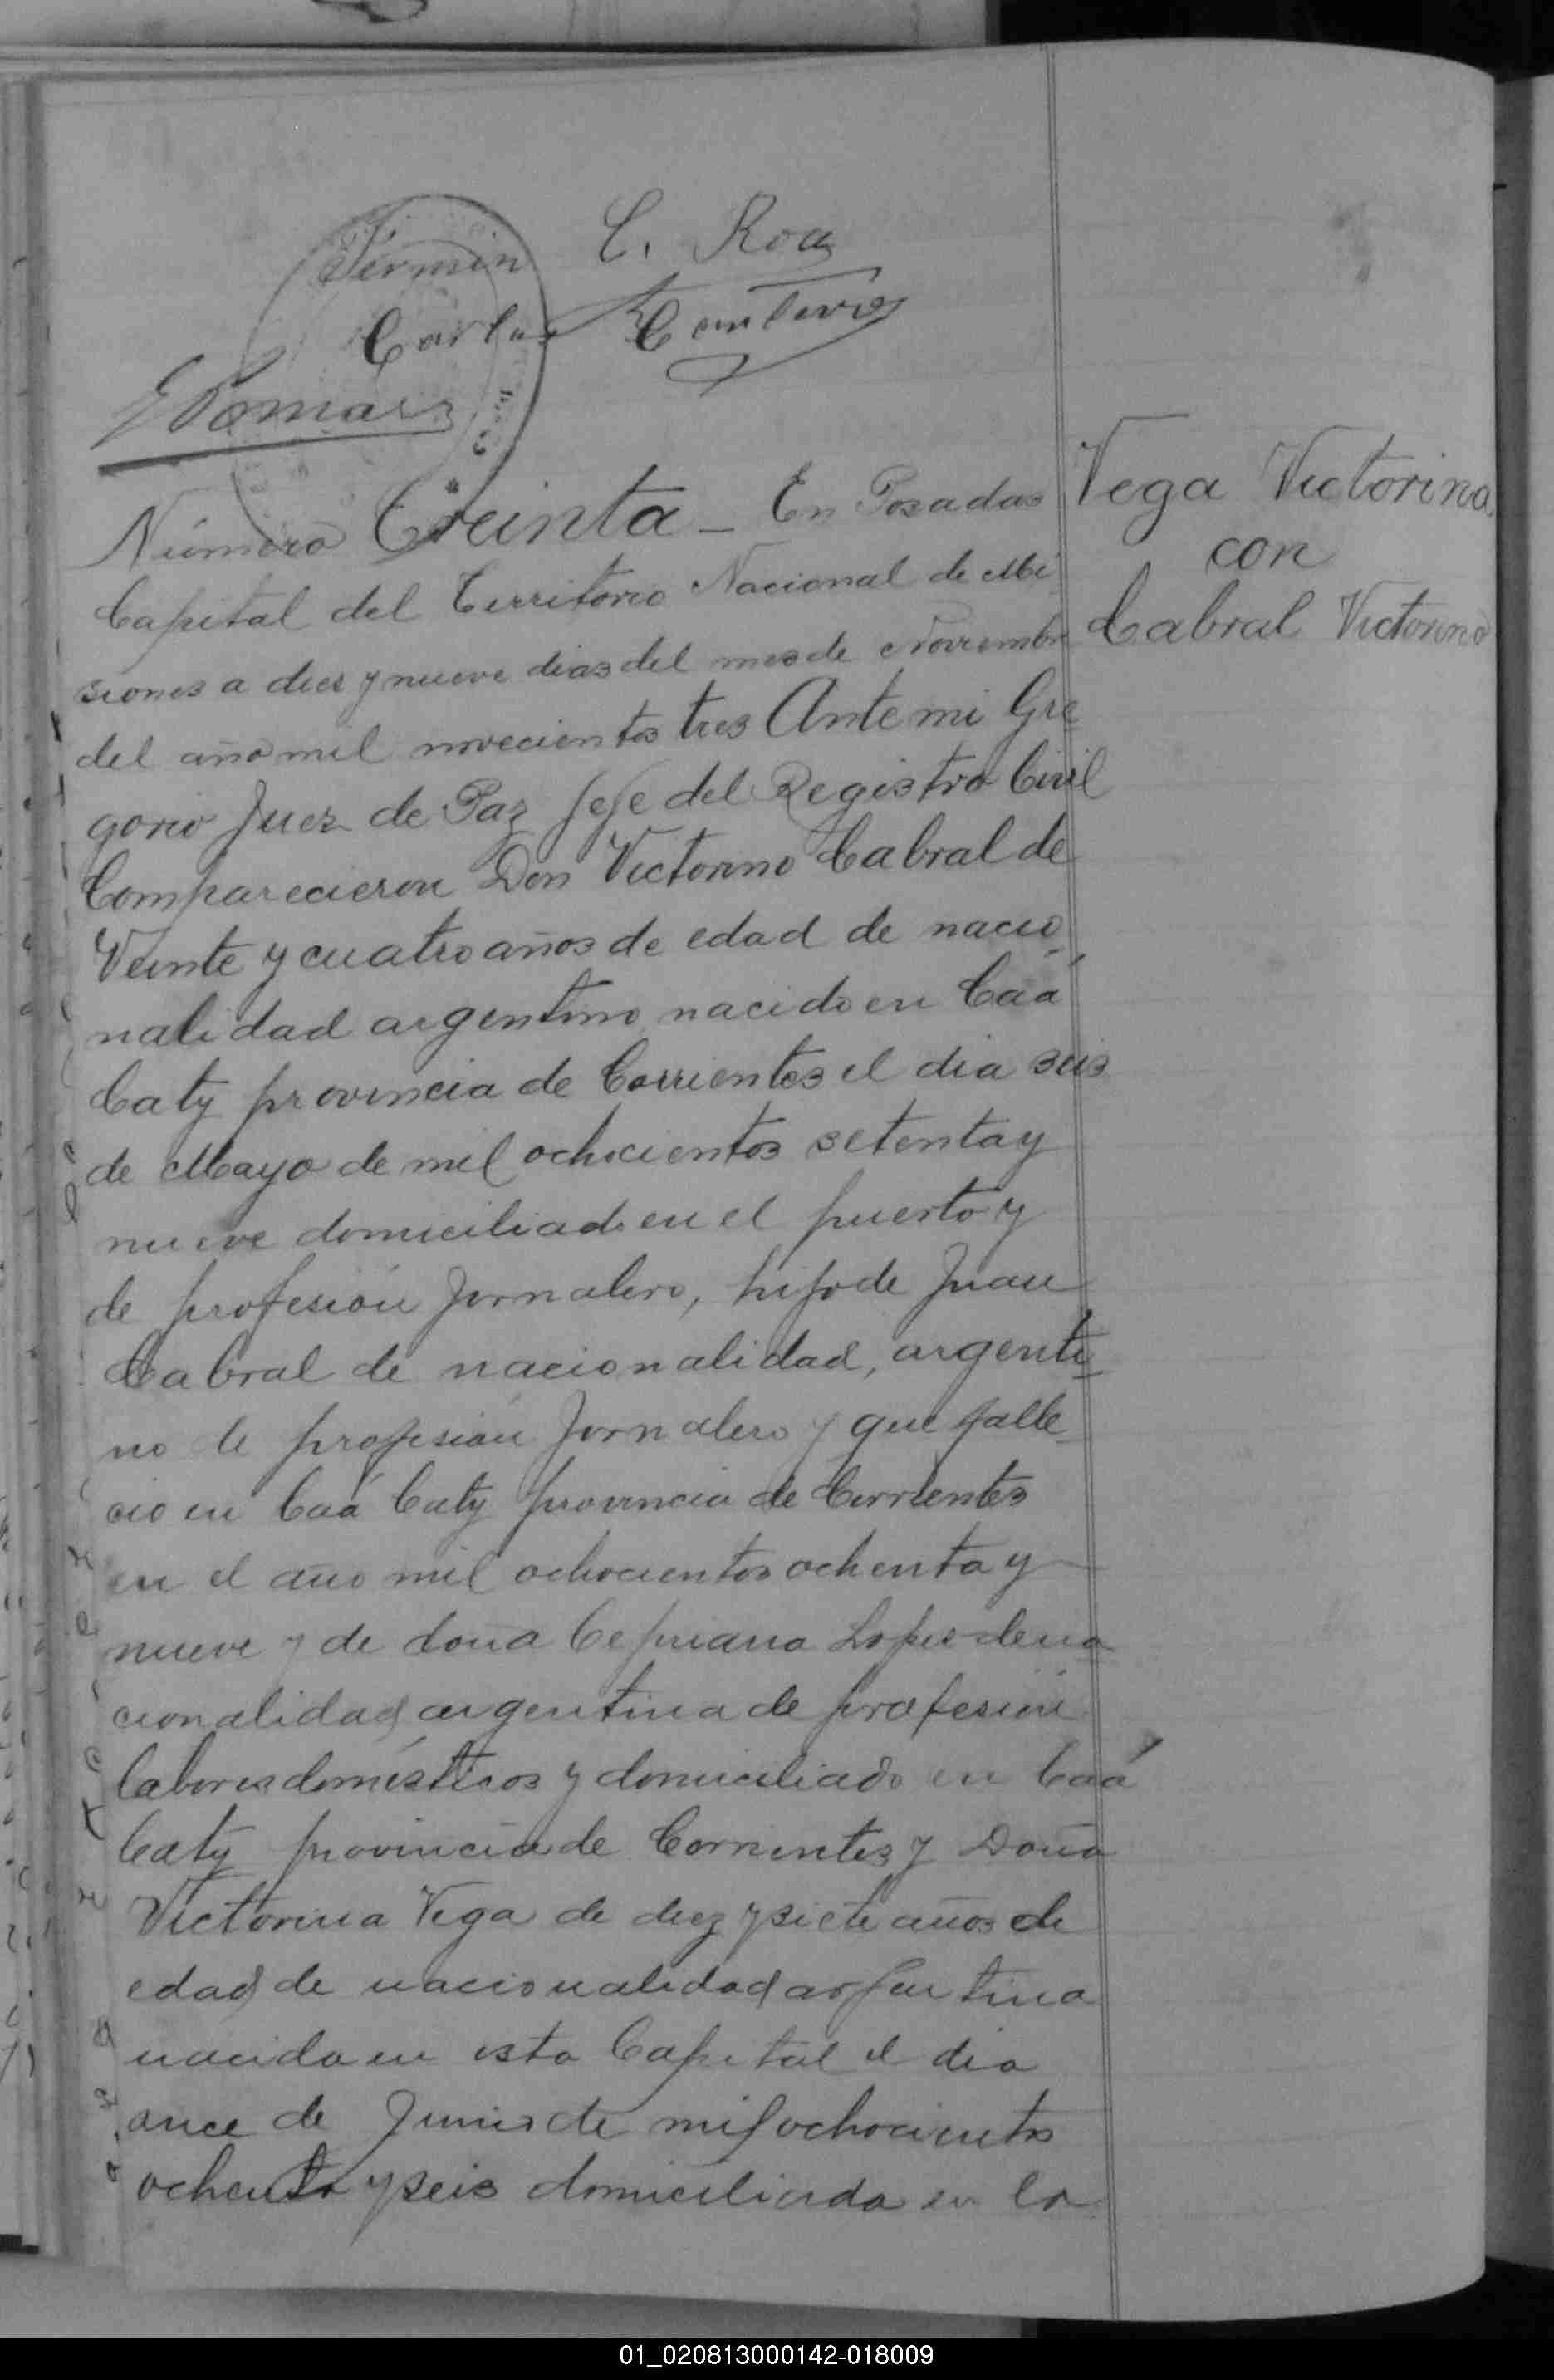 Fermin C. Roa
Carlos Centeno
Número Treinta - En Posadas
Capital del Territorio Nacional de Mi
siones a dies y nueve dias del mes de Noviembre
del año mil novecientos tres Ante mi Gre
gorio Juez de Paz Jefe del Registro Civil
Comparecieron Don Victorino Cabral de
Veinte y cuatro años de edad de nacio
nalidad argentino nacido en Caá
Caty provincia de Corrientes el dia seis
de Mayo de mil ochocientos setenta y
nueve domiciliado en el puerto y
de profesión Jornalero, hijo de Juan
Cabral de nacionalidad, argenti
no de profesión Jornalero y que falle
cio en Caá Caty provincia de Corrientes
en el año mil ochocientos ochenta y
nueve y de doña Cepriana Lopes de na
cionalidad argentina de profesión
labores domésticos y domiciliado en Caá
Caty provincia de Corrientes y Doña
Victorina Vega de diez y siete años de
edad de nacionalidad argentina
nacida en esta Capital el dia
once de Junio de mil ochocientos
ochenta y seis domiciliada en la
Vega Victorina
con
Cabral Victorino
01_020813000142-018009